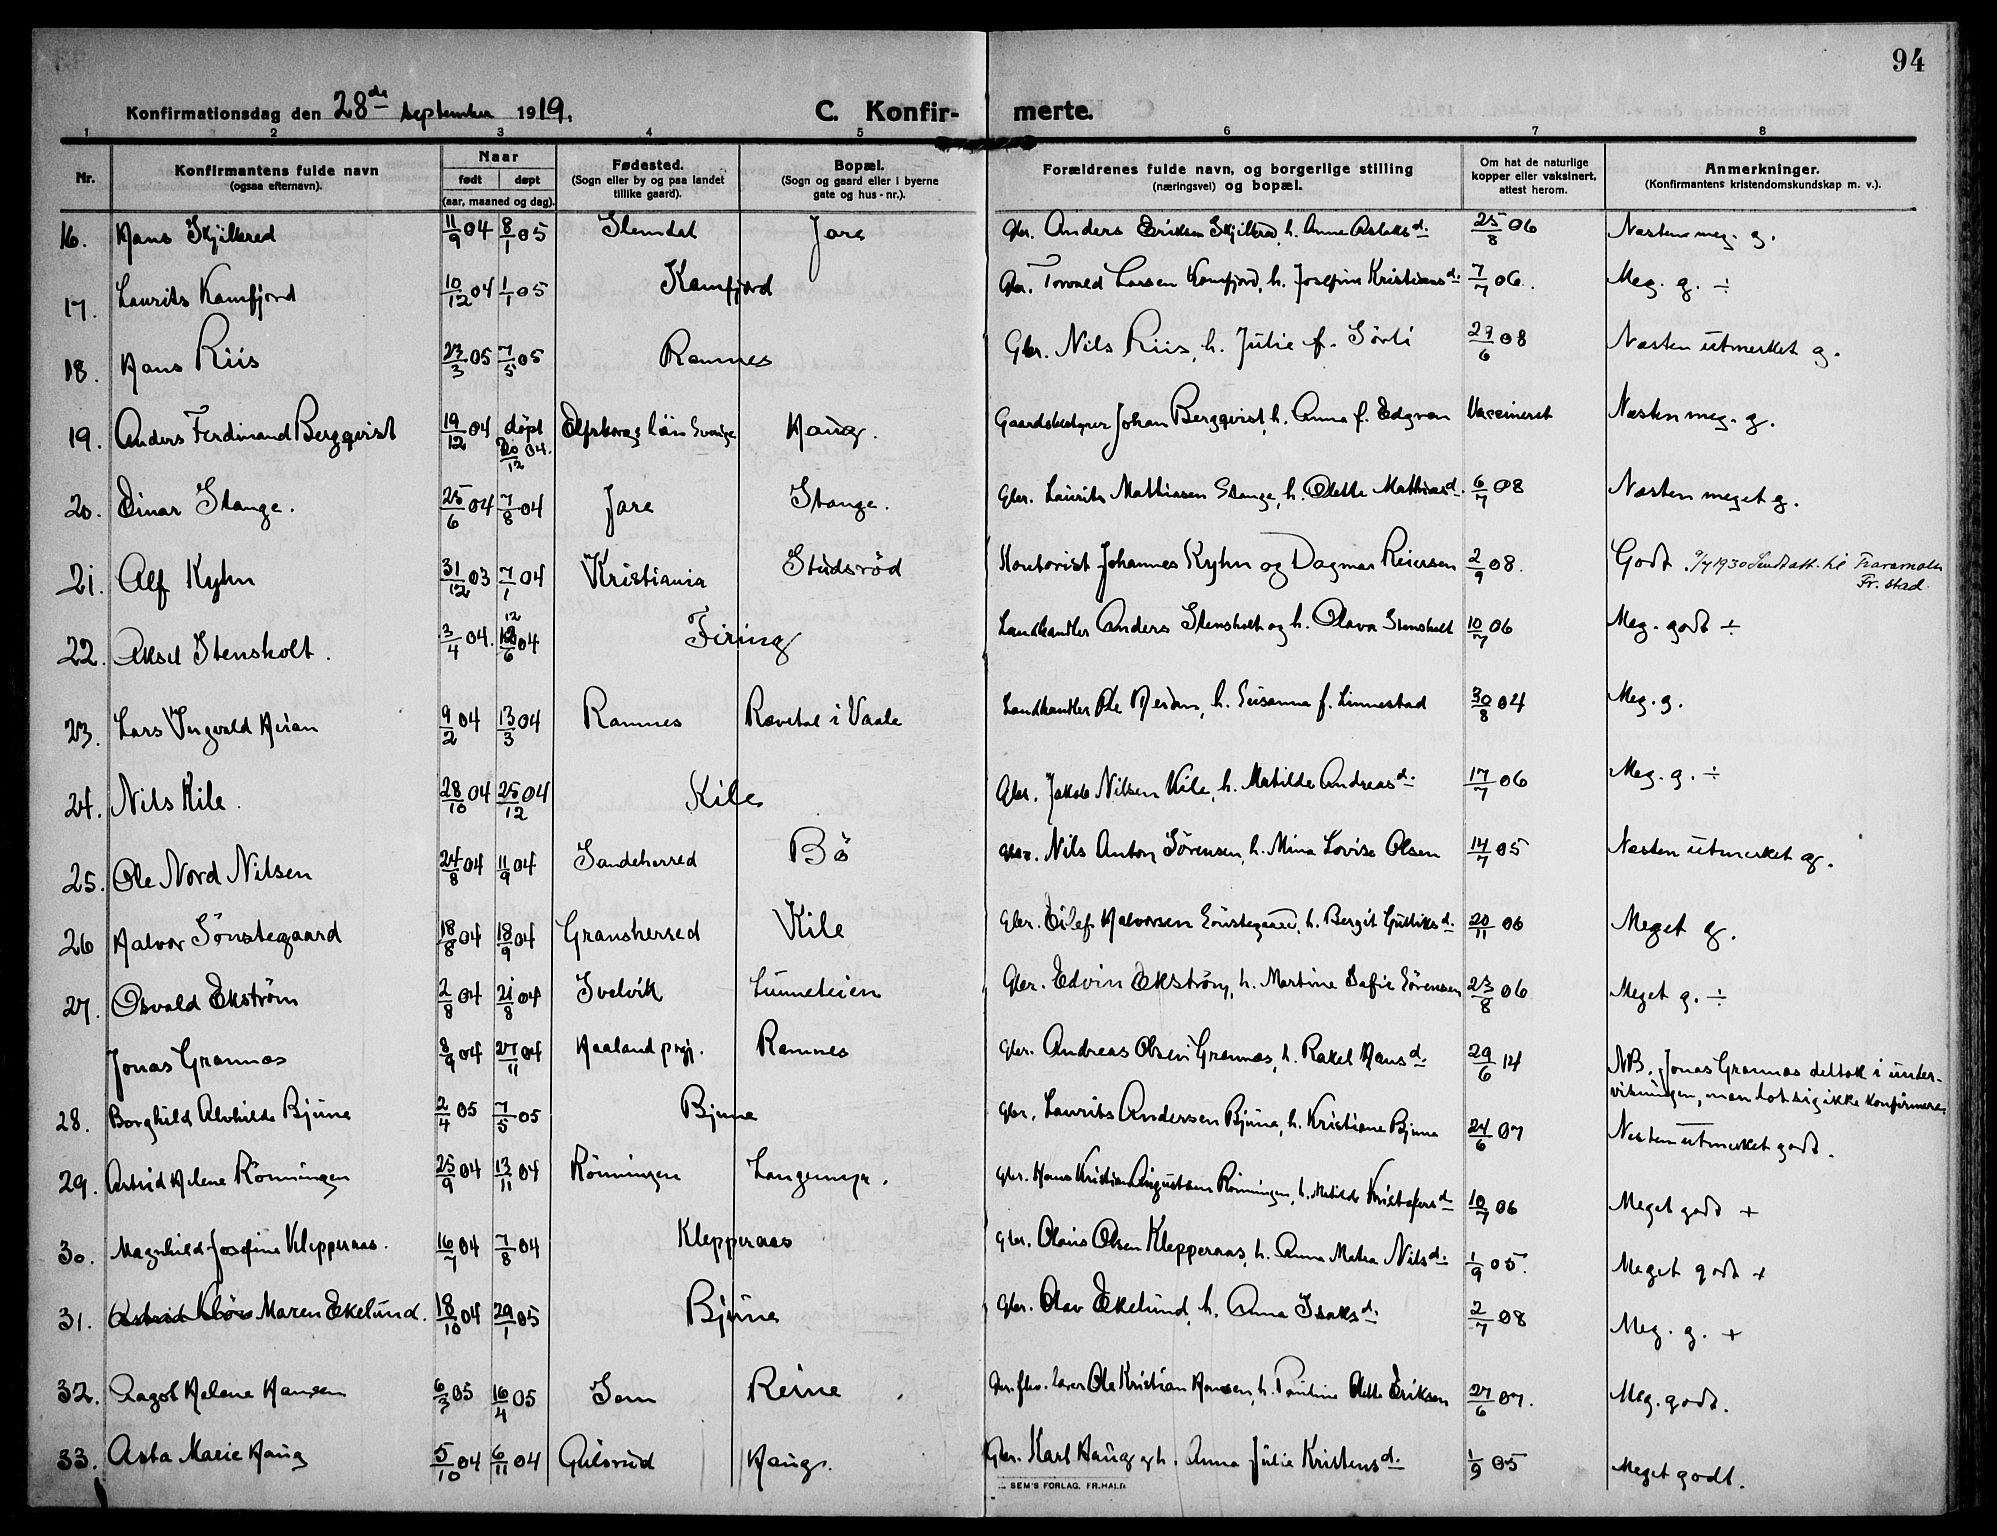 94
Konfirmationsdag den 28de september 1919. C. Konfirmerte.
1 2 3 4 5 6 7 8
Nr. Konfirmantens fulde navn (ogsaa efternavn). Naar født døpt (aar, maaned og dag). Fødested. (Sogn eller by og paa landet tillike gaard). Bopæl. (Sogn og gaard eller i byerne gate og hus-nr.). Forældrenes fulde navn, og borgerlige stilling (næringsvei) og bopæl. Om hat de naturlige kopper eller vaksinert, attest herom. Anmerkninger. (Konfirmantens kristendomskundskap m. v.).
16. Hans Skjilbred 11/9 04 8/1 05 Slemdal Jare Gbr. Anders Eriksen Skjilbred, h. Anne Aslaksd. 25/8 06 Næsten meg. g.
17. Laurits Kamfjord 10/12 04 1/1 05 Kamfjord Gbr. Torvald Larsen Kamfjord, h. Josefine Kristiansd. 7/7 06. Meg. g. ÷
18. Hans Riis 23/3 05 7/5 05 Ramnes Gbr. Nils Riis, h. Julie f. Sörli 29/6 08 Næsten utmerket g.
19. Anders Ferdinand Bergqvist 19/12 04 døpt 20/12 04. Elfsborgs län Sverige Haug. Gaardsbestyrer Johan Bergqvist, h. Anna f. Edgren Vaccineret Næsten meg. g.
20. Einar Stange. 25/6 04 7/8 04 Jare Stange. Gbr. Laurits Mathiasen Stange, h. Olette Mathiasd. 6/7 08 Næsten meget g.
21. Alf Kyhn 31/12 03 7/1 04 Kristiania Studsröd Kontorist Johannes Kyhn og Dagmar Reiersen 2/9 08. Godt. 9/4 1930 Sendt att. til
Fr.stad.
22. Aksel Stensholt. 3/4 04. 12/6 04 Firing Landhandler Anders Stensholt og h. Olava Stensholt 10/7 06 Meg. godt ÷
23. Lars Ingvald 9/2 04 13/3 04 Ramnes Revetal i Vaale Landhandler Ole h. Susanna f. Linnestad 30/8 04 Meg. g.
24. Nils Kile. 28/10 04 25/12 04 Kile Gbr. Jakob Nilsen Kile, h. Matilde Andreasd. 17/7 06 Meg. g. ÷
25. Ole Nord Nilsen 24/8 04 11/9 04 Sandeherred Bö Gbr. Nils Anton Sörensen, h. Mina Lovise Olsen 14/7 05 Næsten utmerket g.
26 Halvor Sönstegaard 18/8 04 18/9 04 Gransherred Kile Gbr. Eilef Halvorsen Sönstegaard, h. Bergit Gulliksd. 20/11 06 Meget g.
27. Osvald Ekström 2/8 04 21/8 04 Svelvik Lunneteien Gbr. Edvin Ekström, h. Martine Sofie Sörensen 23/8 06 Meget g. ÷
Jonas Grannas 8/9 04 27/11 04 Haaland prgj. Ramnes Gbr. Andreas Olsen Grannas, h. Rakel Hansd. 29/6 14 NB. Jonas Grannas deltok i under-
visningen, men lot sig ikke konfirmere
28. Borghild Alvhilde Bjune 2/4 05 7/5 05 Bjune Gbr. Laurits Andersen Bjune, h. Kristiane Bjune 24/6 07 Næsten utmerket godt.
29. Astrid Helene Rönningen 25/9 04 13/11 04 Rönningen Langemyr. Gbr. Hans Kristian Augustsen Rönningen, h. Matilde Kristofersd. 10/7 06 Meget godt +
30. Magnhild Josefine Kleppernaas. 16/7 04 7/8 04 Kleppernaas Gbr. Olaus Olsen Kleppernaas, h. Anna Matea Nilsd. 1/9 05. Meget godt +
31. Maren Ekelund. 18/10 04 29/1 05 Bjune Gbr. Olav Ekelund, h. Anna Isaksd. 2/7 08 Meg. g. +
32. Aagot Helene Hansen 6/3 05 16/4 05 Sem Reine lærer Ole Kristian Hansen, h. Pauline Olette Eriksen 27/6 07. Meg. godt.
33. Asta Marie Haug 5/10 04 6/11 04 Gulsrud Haug. Gbr. Karl Haug og h. Anna Julie Kristensd. 1/9 05 Meget godt.
SEM'S FORLAG, FR.HALD